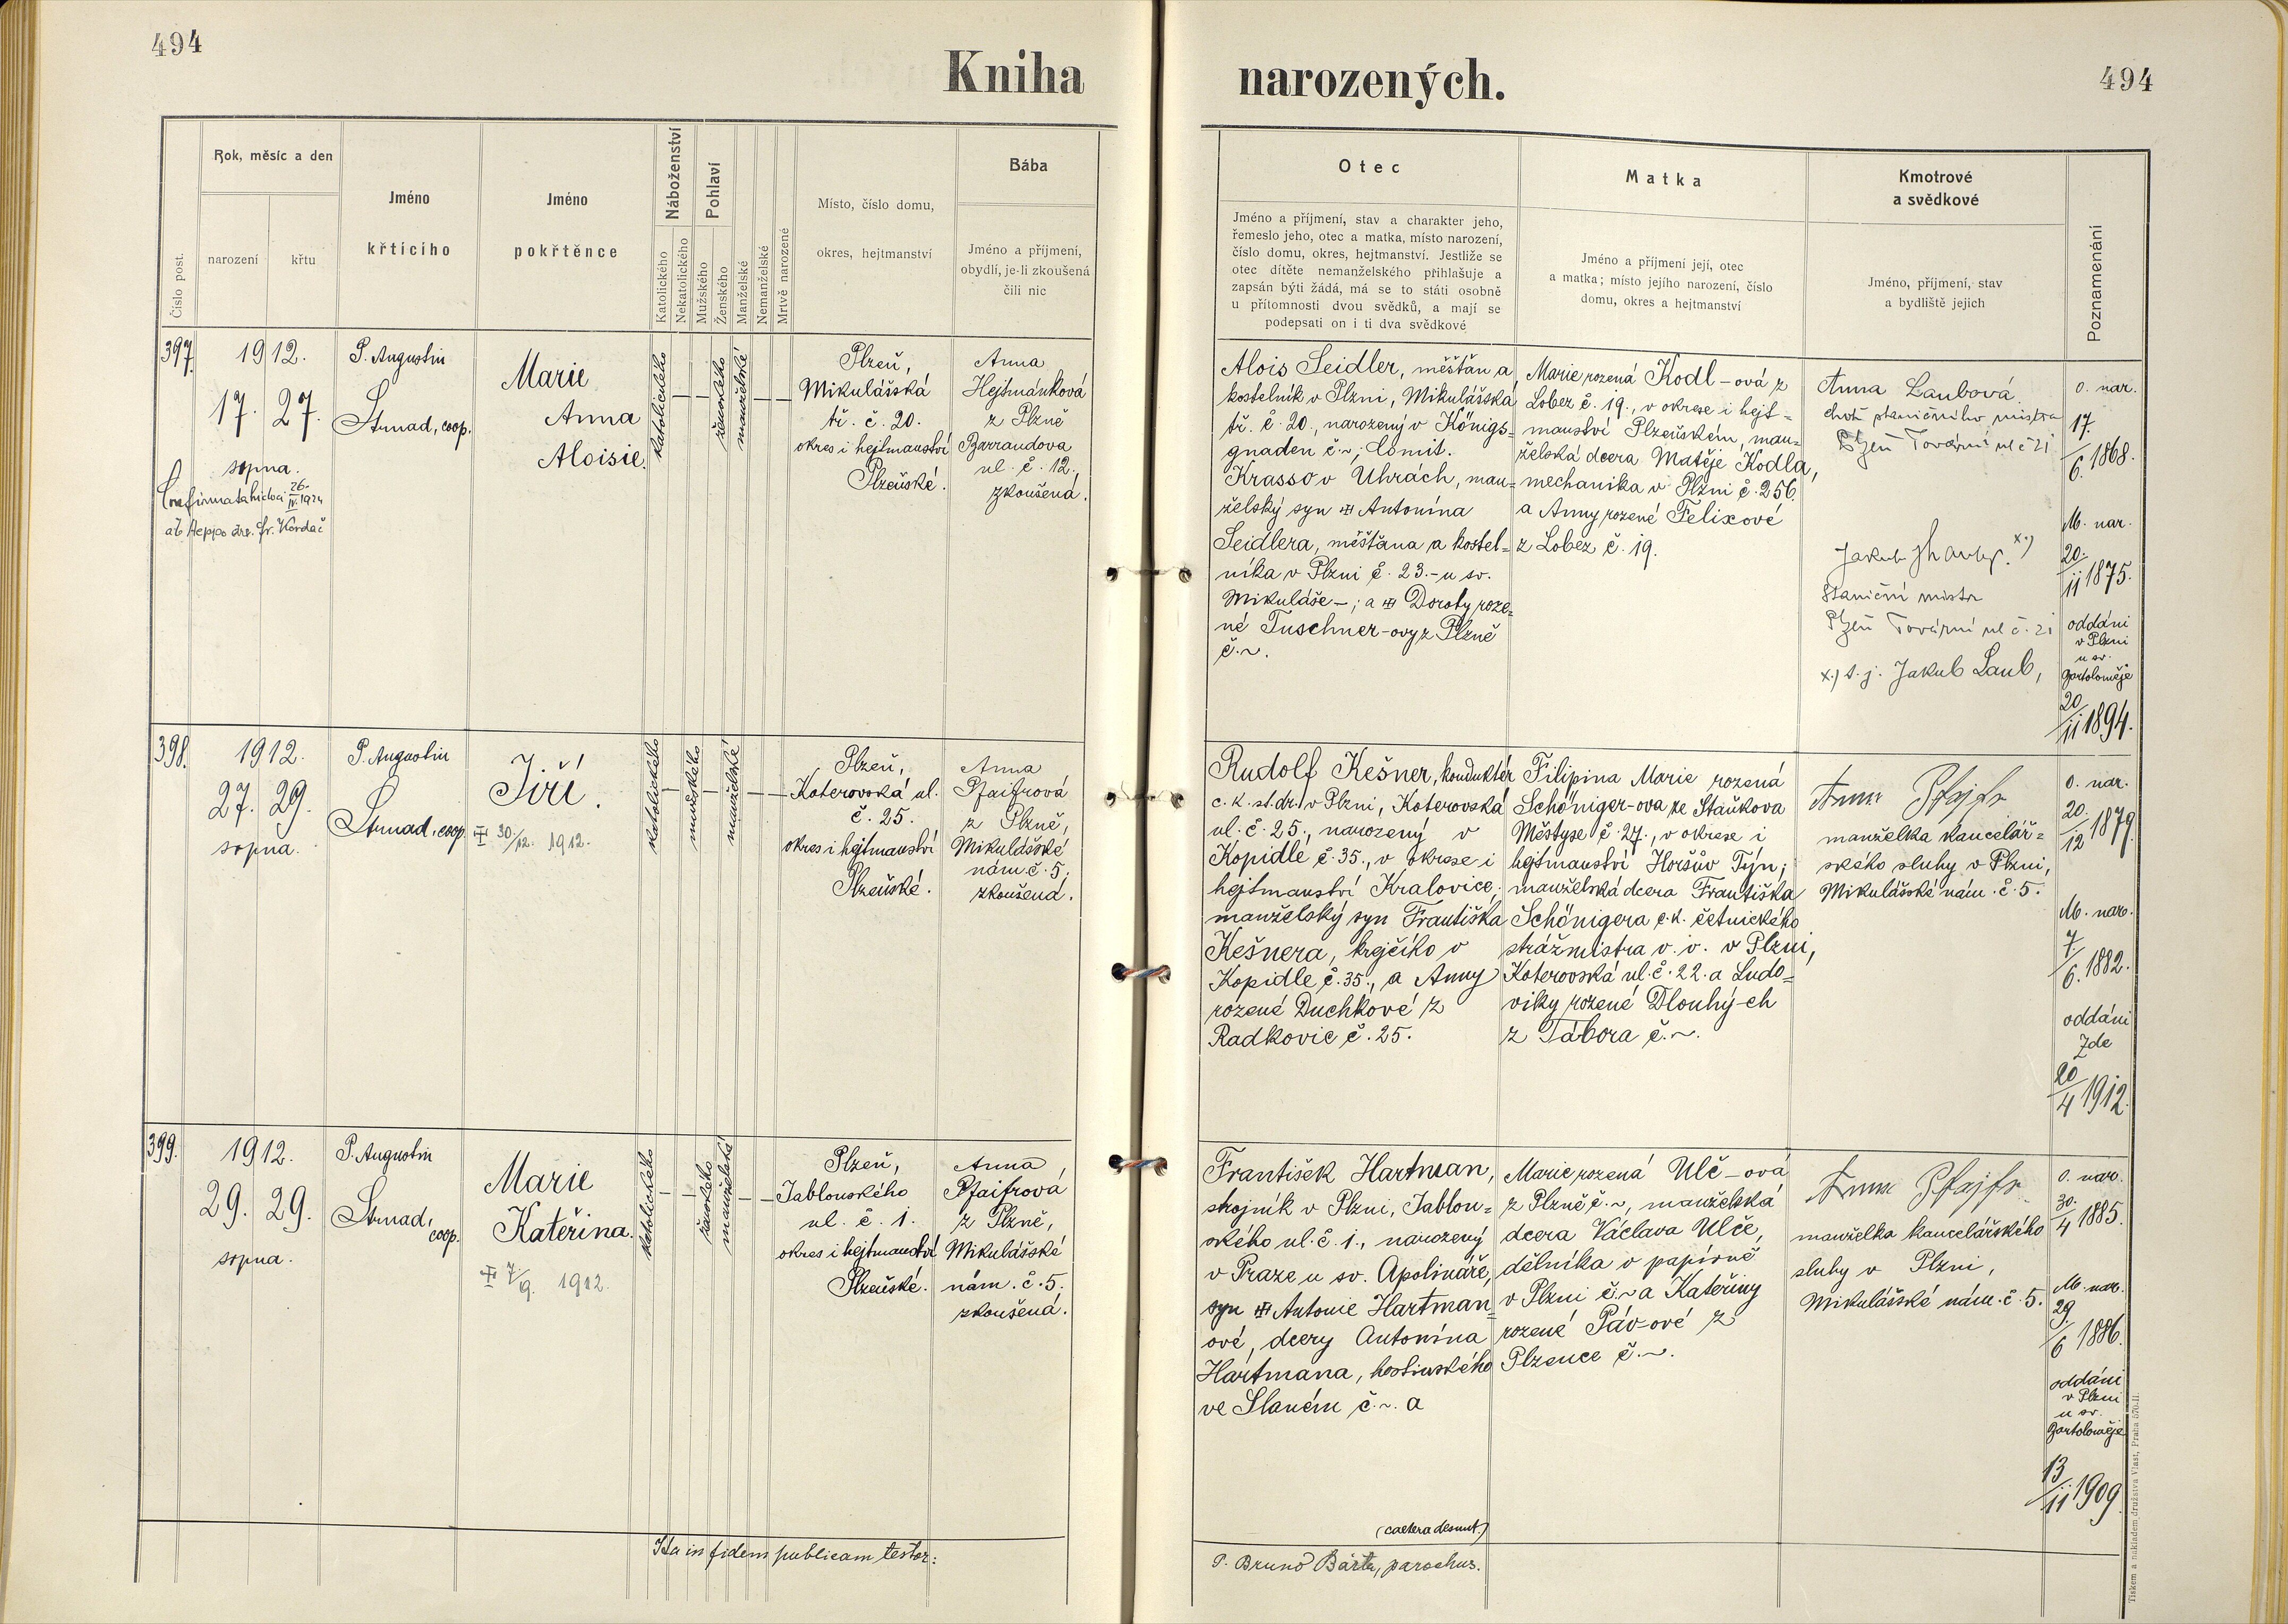 494
Kniha narozených.
494
Číslo post.
Rok, měsíc a den
narození
křtu
Jméno
křtícího
Jméno
pokřtěnce
Náboženství
Katolického
Nekatolického
Pohlaví
Mužského
Ženského
Manželské
Nemanželské
Mrtvě narozené
Místo, číslo domu,
okres, hejtmanství
Bába
Jméno a příjmení,
obydlí, je-li zkoušená
čili nic
Otec
Jméno a příjmení, stav a charakter jeho,
řemeslo jeho, otec a matka, místo narození,
číslo domu, okres, hejtmanství. Jestliže se
otec dítěte nemanželského přihlašuje a
zapsán býti žádá, má se to státi osobně
u přítomnosti dvou svědků, a mají se
podepsati on i ti dva svědkové
Matka
Jméno a příjmení její, otec
a matka; místo jejího narození, číslo
domu, okres a hejtmanství
Kmotrové
a svědkové
Jméno, příjmení, stav
a bydliště jejich
Poznamenání
397.
1912.
17. 27.
sopna.
26.
IV. 1924
Fr. Kordač
P. Augustin
Strnad, coop.
Marie
Anna
Aloisie.
katolického
ženského
manželské
Plzeň,
Mikulášská
tř. č. 20.
okres i hejtmanství
Plzeňské.
Anna
Hejtmánková
z Plzně
Barrandova
ul. č. 12.,
zkoušená.
Alois Seidler, měšťan a
kostelník v Plzni, Mikulášská
tř. č. 20., narozený v Königs-
gnaden č. ~, Comit.
Krasso v Uhrách, man-
želský syn Antonína
Seidlera, měšťana a kostel-
níka v Plzni č. 23. - u sv.
Mikuláše -; a Doroty roze-
né Tuschner-ovy z Plzně
č. ~.
Marie rozená Kodl-ová z
Lobez č. 19., v okrese i hejt-
manství Plzeňském, man-
želská dcera Matěje Kodla,
mechanika v Plzni č. 256.
a Anny rozené Felixové
z Lobez č. 19.
Anna Laubová
choť staničního mistra
Plzeň Tovární ul č 21
Jakub x.)
Staniční mistr
Plzeň Tovární ul č. 21
x.) t. j. Jakub Laub,
O. nar.
17.
6. 1868.
M. nar.
20.
11 1875.
oddáni
v Plzni
u sv.
Bartoloměje
20
11 1894.
398.
1912.
27. 29.
sopna.
P. Augustin
Strnad, coop.
Jiří.
30./12. 1912.
katolického
mužského
manželské
Plzeň,
Koterovská ul.
č. 25.
okres i hejtmanství
Plzeňské.
Anna
Pfaifrová
z Plzně,
Mikulášské
nám. č. 5.
zkoušená.
Rudolf Kešner, konduktér
c. k. st. dr. v Plzni, Koterovská
ul. č. 25., narozený v
Kopidle č. 35., v okrese i
hejtmanství Kralovice;
manželský syn Františka
Kešnera, krejčího v
Kopidle č. 35., a Anny
rozené Duchkové z
Radkovic č. 25.
Filipina Marie rozená
Schöniger-ova ze Staňkova
Městyse č. 27., v okrese i
hejtmanství Horšův Týn;
manželská dcera Františka
Schönigera c. k. četnického
strážmistra v. v. v Plzni,
Koterovská ul. č. 22. a Ludo-
viky rozené Dlouhý-ch
z Tábora č. ~.
Anna Pfajfr
manželka kancelář-
ského sluhy v Plzni,
Mikulášské nám. č. 5.
O. nar.
20.
12 1879.
M. nar.
7.
6. 1882.
oddáni
zde
20
4 1912.
399.
1912.
29. 29.
sopna.
P. Augustin
Strnad,
coop.
Marie
Kateřina.
7./9. 1912.
katolického
ženského
manželská
Plzeň,
Jablonského
ul. č. 1.
okres i hejtmanství
Plzeňské.
Anna
Pfaifrová
z Plzně,
Mikulášské
nám. č. 5.
zkoušená.
František Hartman,
strojník v Plzni, Jablon-
ského ul. č. 1., narozený
v Praze u sv. Apolináře,
syn Antonie Hartman-
ové, dcery Antonína
Hartmana, hostinského
ve Slaném č. ~. a
(caetera desunt.)
Marie rozená Ulč-ová
z Plzně č. ~, manželská
dcera Václava Ulče,
dělníka v papírně
v Plzni č. ~ a Kateřiny
rozené Páv-ové z
Plzence č. ~.
Anna Pfajfr
manželka kancelářského
sluhy v Plzni,
Mikulášské nám. č. 5.
O. nar.
30.
4 1885.
M. nar.
29.
6 1886.
oddáni
v Plzni
u sv.
Bartoloměje
13
11 1909.
Ita in fidem publicam testor:
P. Bruno Bárta, parochus.
Tiskem a nakladem družstva Vlast, Praha 570-II.